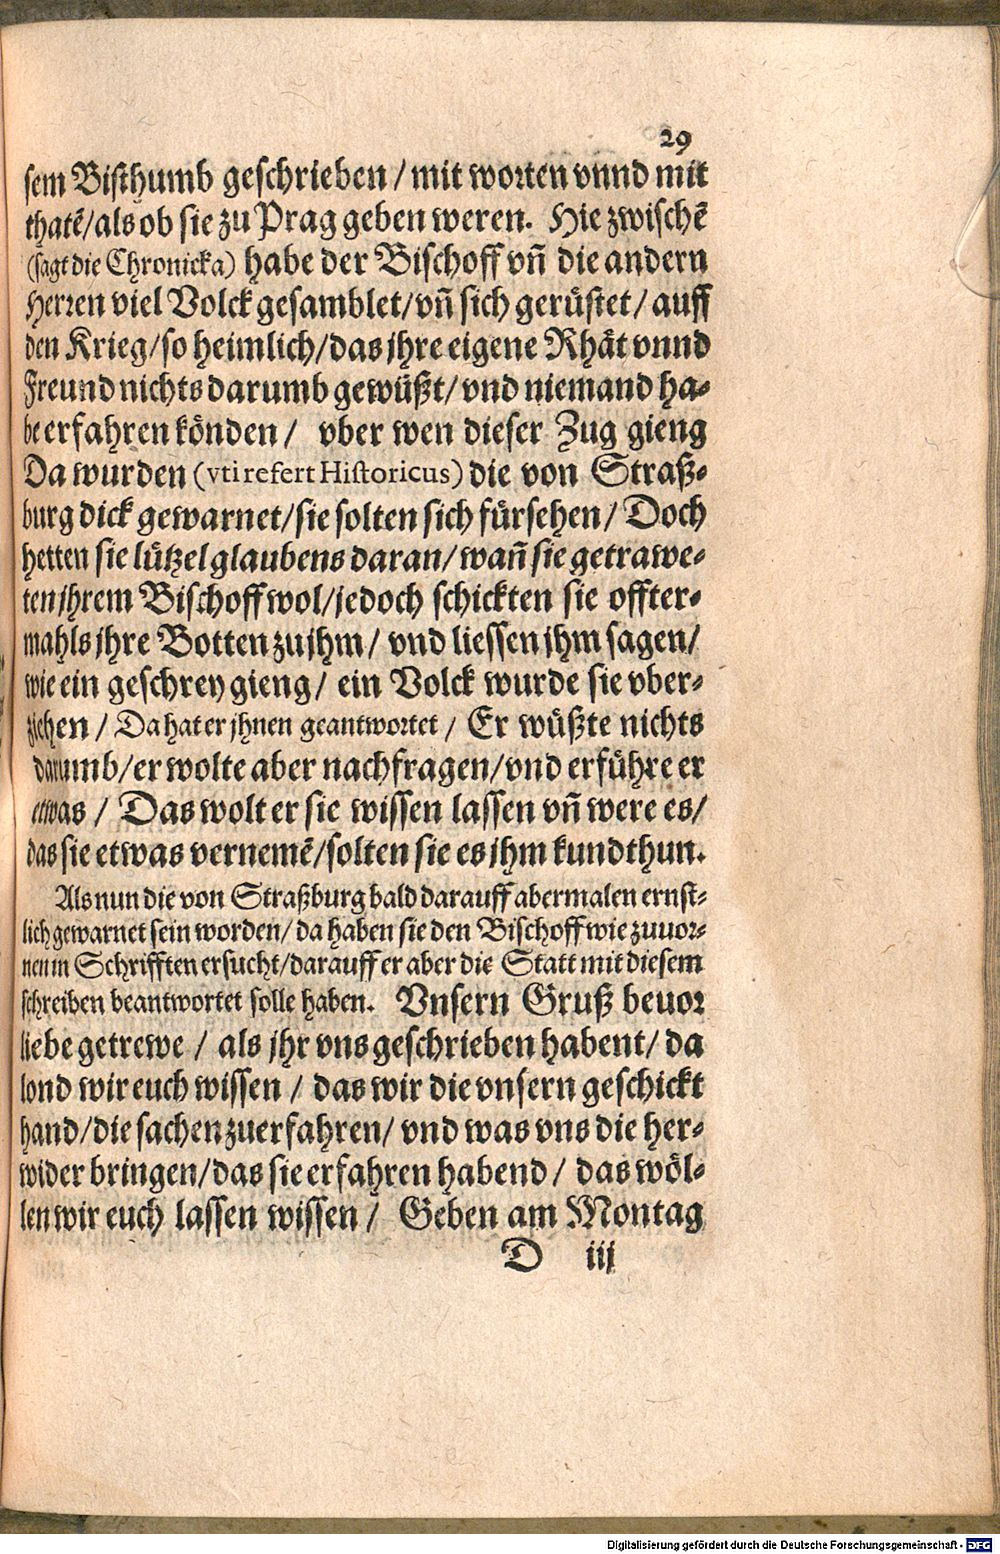 29
sem Bisthumb geschrieben / mit worten vnnd mit
thatẽ/ als ob sie zu Prag geben weren. Hie zwischẽ
(sagt die Chronicka) habe der Bischoff vñ die andern
Herren viel Volck gesamblet/ vñ sich gerüstet/ auff
den Krieg/ so heimlich/ das jhre eigene Rhät vnnd
Freund nichts darumb gewüßt/ vnd niemand ha-
be erfahren könden / vber wen dieser Zug gieng
Da wurden (vti refert Historicus) die von Straß-
burg dick gewarnet/ sie solten sich fürsehen/ Doch
hetten sie lützel glaubens daran/ wañ sie getrawe-
ten jhrem Bischoff wol/ jedoch schickten sie offter-
mahls jhre Botten zu jhm/ vnd liessen jhm sagen/
wie ein geschrey gieng/ ein Volck wurde sie vber-
ziehen / Da hat er jhnen geantwortet / Er wüßte nichts
darumb/ er wolte aber nachfragen/ vnd erführe er
etwas / Das wolt er sie wissen lassen vñ were es/
das sie etwas vernemẽ/ solten sie es jhm kundthun.
Als nun die von Straßburg bald darauff abermalen ernst-
lich gewarnet sein worden/ da haben sie den Bischoff wie zuuor-
nen in Schrifften ersucht/ darauff er aber die Statt mit diesem
schreiben beantwortet solle haben. Vnsern Gruß beuor
liebe getrewe / als jhr vns geschrieben habent/ da
lond wir euch wissen / das wir die vnsern geschickt
hand/ die sachen zuerfahren/ vnd was vns die her-
wider bringen/ das sie erfahren habend / das wöl-
len wir euch lassen wissen / Geben am Montag
D iij
Digitalisierung gefördert durch die Deutsche Forschungsgemeinschaft - DFG